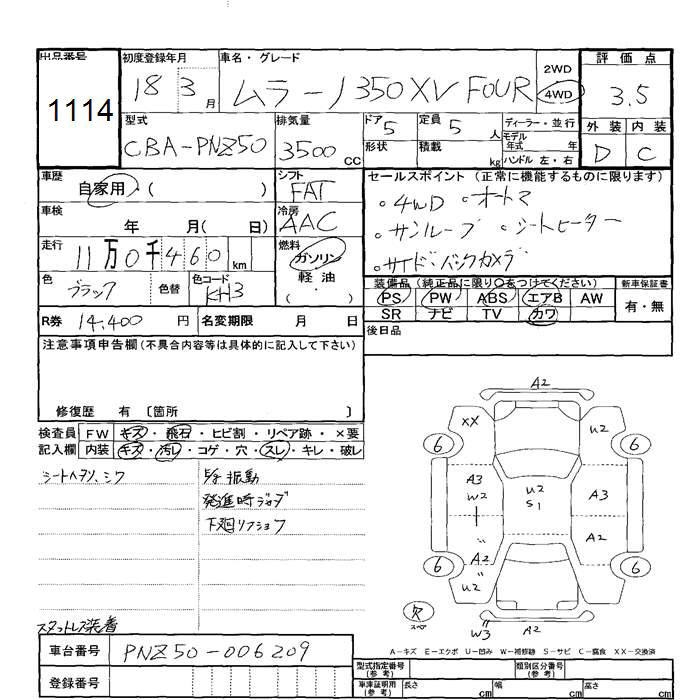 出品番号 1114
初度登録年月 18 3 月
車名・グレード ムラーノ 350XV FOUR
2WD 4WD
評価点 3.5
型式 CBA-PNZ50
排気量 3500 CC
ドア 5 形状
定員 5 人
積載 kg
ディーラー・並行
モデル年式 年
ハンドル 左・右
外装 内装
D C
車歴 自家用 ( )
シフト FAT
車検 年 月( 日)
冷房 AAC
走行 11万0千460 km
燃料 ガソリン 軽油 ( )
色 ブラック 色替 色コード KH3
セールスポイント (正常に機能するものに限ります)
。4WD 。オートマ
。サンルーフ 。シートヒーター
。サイド・バックカメラ
装備品 (純正品に限り○をつけてください) 新車保証書
PS PW ABS エアB AW 有・無
SR ナビ TV カワ
R券 14,400 円 名変期限 月 日
後日品
注意事項申告欄(不具合内容等は具体的に記入して下さい)
修復歴 有 〔箇所 〕
検査員 FW キズ・飛石・ヒビ割・リペア跡・×要
記入欄 内装 キズ・汚レ・コゲ・穴・スレ・キレ・破レ
シートヘタリ、シワ
振動
発進時
下廻リ
スタットレス装着
A2
XX U2
6 6
A3 W2 U2 S1 A3
A2 A2
6 6
U2
欠 スペア
W3 A2
A-キズ E-エクボ U-凹み W-補修跡 S-サビ C-腐食 XX-交換済
車台番号 PNZ50-006209
登録番号
型式指定番号(参考) 類別区分番号(参考)
車庫証明用(参考) 長さ cm 幅 cm 高さ cm